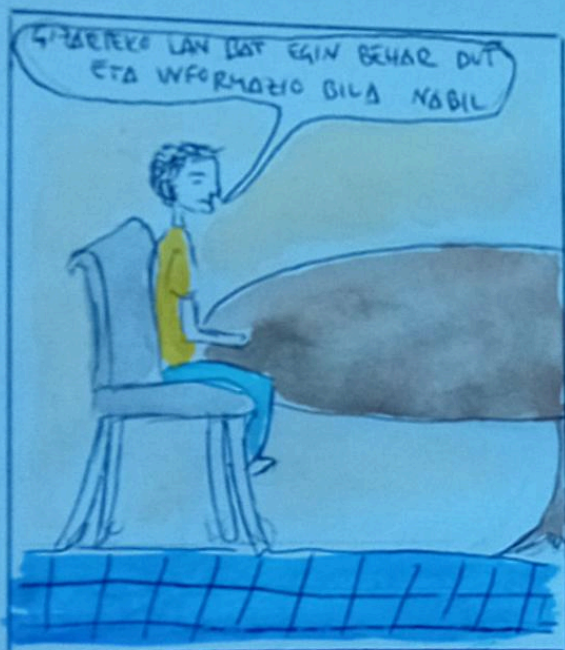 GIZARTEKO LAN BAT EGIN BEHAR DUT
ETA INFORMAZIO BILA NABIL